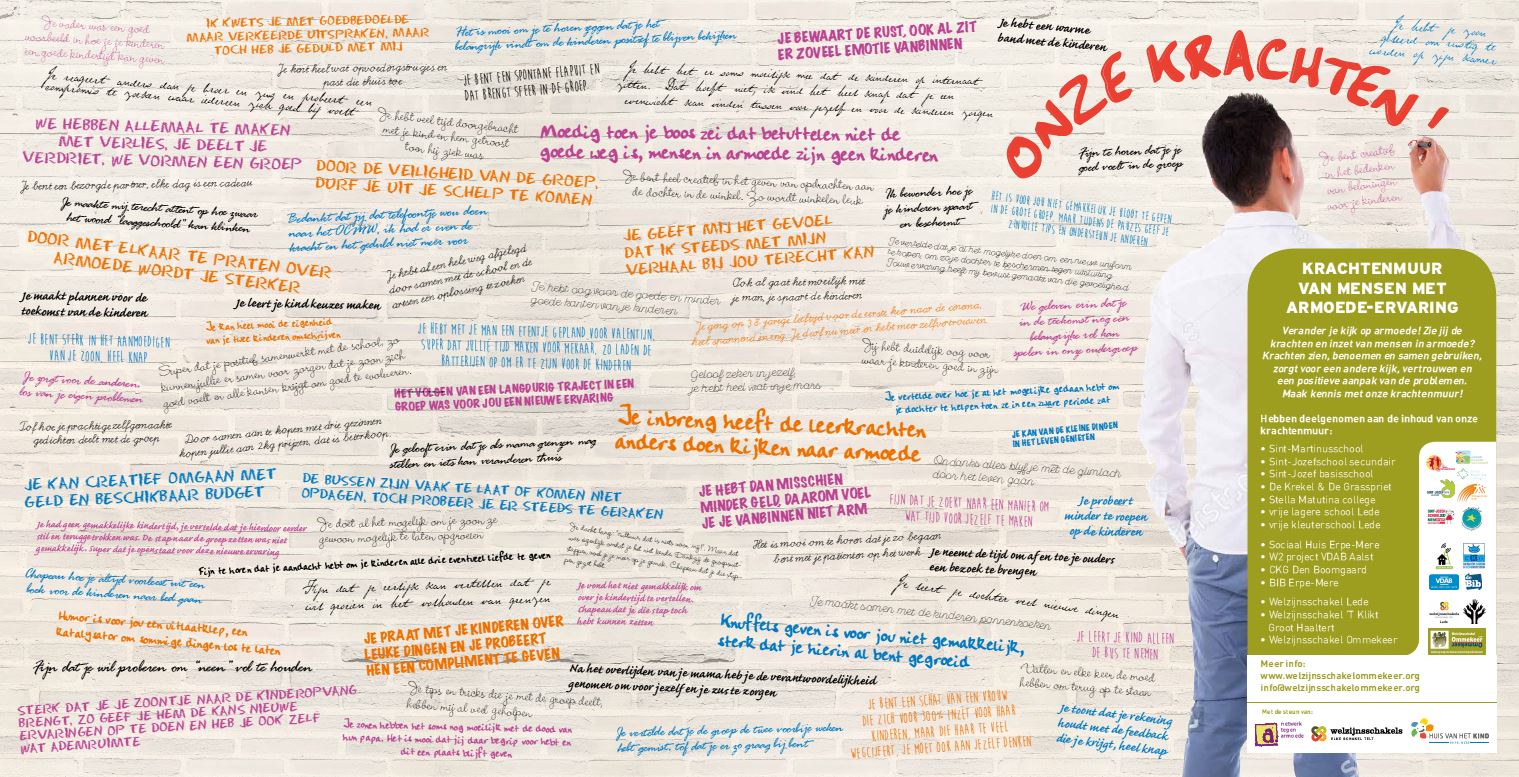 ONZE KRACHTEN!
Je vader was een goed
voorbeeld in hoe je je kinderen
een goede kindertijd kan geven
IK KWETS JE MET GOEDBEDOELDE
MAAR VERKEERDE UITSPRAKEN, MAAR
TOCH HEB JE GEDULD MET MIJ
Het is mooi om je te horen zeggen dat je het
belangrijk vindt om de kinderen positief te blijven bekijken
JE BEWAART DE RUST, OOK AL ZIT
ER ZOVEEL EMOTIE VANBINNEN
Je hebt een warme
band met de kinderen
Je hebt je zoon
geleerd om rustig te
worden op zijn kamer
Je reageert anders dan je broer en zus en probeert een
compromis te zoeken waar iedereen zich goed bij voelt
Je kent heel wat opvoedingstrucjes en
past die thuis toe
JE BENT EEN SPONTANE FLAPUIT EN
DAT BRENGT SFEER IN DE GROEP
Je hebt het er soms moeilijk mee dat de kinderen op internaat
zitten. Dat hoeft niet, ik vind het heel knap dat je een
evenwicht kan vinden tussen voor jezelf en voor de kinderen zorgen
WE HEBBEN ALLEMAAL TE MAKEN
MET VERLIES, JE DEELT JE
VERDRIET, WE VORMEN EEN GROEP
Je hebt veel tijd doorgebracht
met je kind en hem getroost
toen hij ziek was
Moedig toen je boos zei dat betuttelen niet de
goede weg is, mensen in armoede zijn geen kinderen
Fijn te horen dat je je
goed voelt in de groep
Je bent creatief
in het bedenken
van beloningen
voor je kinderen
Je bent een bezorgde partner, elke dag is een cadeau
DOOR DE VEILIGHEID VAN DE GROEP,
DURF JE UIT JE SCHELP TE KOMEN
Je bent heel creatief in het geven van opdrachten aan
de dochter in de winkel. Zo wordt winkelen leuk
Ik bewonder hoe je
je kinderen spaart
en beschermt
HET IS VOOR JOU NIET GEMAKKELIJK JE BLOOT TE GEVEN
IN DE GROTE GROEP, MAAR TIJDENS DE PAUZES GEEF JE
ZINVOLLE TIPS EN ONDERSTEUN JE ANDEREN
Je maakte mij terecht attent op hoe zwaar
het woord "laaggeschoold" kan klinken
Bedankt dat jij dat telefoontje wou doen
naar het OCMW, ik had er even de
kracht en het geduld niet meer voor
JE GEEFT MIJ HET GEVOEL
DAT IK STEEDS MET MIJN
VERHAAL BIJ JOU TERECHT KAN
Je vertelde dat je al het mogelijke doen om een nieuwe uniform
te kopen, om zo je dochter te beschermen tegen uitsluiting
Jouw ervaring heeft mij bewust gemaakt van die gevoeligheid
DOOR MET ELKAAR TE PRATEN OVER
ARMOEDE WORDT JE STERKER
Je hebt al een hele weg afgelegd
door samen met de school en de
artsen een oplossing te zoeken
Je hebt oog voor de goede en minder
goede kanten van je kinderen
Ook al gaat het moeilijk met
je man, je spaart de kinderen
Je maakt plannen voor de
toekomst van de kinderen
Je leert je kind keuzes maken
Je ging op 38 jarige leeftijd voor de eerste keer naar de corona,
het spannend en eng. Je durf nu meer en hebt meer zelfvertrouwen
We geloven erin dat je
in de toekomst nog een
belangrijke rol kan
spelen in onze oudergroep
JE BENT STERK IN HET AANMOEDIGEN
VAN JE ZOON, HEEL KNAP
Je kan heel mooi de eigenheid
van je twee kinderen omschrijven
JE HEBT MET JE MAN EEN ETENTJE GEPLAND VOOR VALENTIJN,
SUPER DAT JULLIE TIJD MAKEN VOOR MEKAAR, ZO LADEN DE
BATTERIJEN OP OM ER TE ZIJN VOOR DE KINDEREN
Jij hebt duidelijk oog voor
waar je kinderen goed in zijn
Super dat er positief samenwerkt met de school, zo
kunnen jullie er samen voor zorgen dat je zoon zich
goed voelt en alle kansen krijgt om goed te evolueren.
Je zorgt voor de anderen,
los van je eigen problemen
Geloof zeker in jezelf,
je hebt heel wat in je mars
HET VOLGEN VAN EEN LANGDURIG TRAJECT IN EEN
GROEP WAS VOOR JOU EEN NIEUWE ERVARING
Je vertelde over hoe je al het mogelijke gedaan hebt om
je dochter te helpen toen ze in een zware periode zat
Tof hoe je prachtige zelfgemaakte
gedichten deelt met de groep
Door samen aan te kopen met drie gezinnen
kopen jullie aan 2kg prijzen, dat is beterkoop.
Je gelooft erin dat je als mama grenzen mag
stellen en iets kan veranderen thuis
Je inbreng heeft de leerkrachten
anders doen kijken naar armoede
JE KAN VAN DE KLEINE DINGEN
IN HET LEVEN GENIETEN
Ondanks alles blijf je met de glimlach
door het leven gaan
JE KAN CREATIEF OMGAAN MET
GELD EN BESCHIKBAAR BUDGET
DE BUSSEN ZIJN VAAK TE LAAT OF KOMEN NIET
OPDAGEN, TOCH PROBEER JE ER STEEDS TE GERAKEN
JE HEBT DAN MISSCHIEN
MINDER GELD, DAAROM VOEL
JE JE VANBINNEN NIET ARM
FIJN DAT JE ZOEKT NAAR EEN MANIER OM
WAT TIJD VOOR JEZELF TE MAKEN
Je probeert
minder te roepen
op de kinderen
Je had geen gemakkelijk kindertijd, je vertelde dat je hierdoor eerder
stil en teruggetrokken was. De stap naar de groep zetten was niet
gemakkelijk. Super dat je openstaat voor deze nieuwe ervaring
Je doet al het mogelijk om je zoon zo
gewoon mogelijk te laten opgroeien
Het is mooi om te horen dat je zo begaan
bent met je patiënten op het werk
Je neemt de tijd om af en toe je ouders
een bezoek te brengen
Fijn te horen dat je aandacht hebt om je kinderen alle drie evenveel liefde te geven
Chapeau hoe je altijd voorleest uit een
boek voor de kinderen naar bed gaan
Fijn dat je eerlijk kan vertellen dat je
wil groeien in het volhouden van grenzen
Je vond het niet gemakkelijk om
over je kindertijd te vertellen.
Chapeau dat je die stap toch
hebt kunnen zetten
Je leert je dochter veel nieuwe dingen
Je maakt samen met de kinderen pannenkoeken
Humor is voor jou een uitlaatklep, een
katalysator om sommige dingen los te laten
JE PRAAT MET JE KINDEREN OVER
LEUKE DINGEN EN JE PROBEERT
HEN EEN COMPLIMENT TE GEVEN
Knuffels geven is voor jou niet gemakkelijk,
sterk dat je hierin al bent gegroeid
JE LEERT JE KIND ALLEEN
DE BUS TE NEMEN
Fijn dat je wil proberen om "neen" vol te houden
Na het overlijden van je mama heb je de verantwoordelijkheid
genomen om voor jezelf en je zus te zorgen
Vallen en elke keer de moed
hebben om terug op te staan
STERK DAT JE JE ZOONTJE NAAR DE KINDEROPVANG
BRENGT, ZO GEEF JE HEM DE KANS NIEUWE
ERVARINGEN OP TE DOEN EN HEB JE OOK ZELF
WAT ADEMRUIMTE
Je tips en tricks die je met de groep deelt,
hebben mij al veel geholpen
Je zonen hebben het soms nog moeilijk met de dood van
hun papa. Het is mooi dat jij daar begrip voor hebt en
dit een plaats blijft geven
Je vertelde dat je de groep de twee voorbije weken
hebt gemist, tof dat je er zo graag bij bent
JE BENT EEN SCHAT VAN EEN VROUW
DIE ZICH VOOR 300% INZET VOOR HAAR
KINDEREN, MAAR DIE HAAR TE VEEL
WEGCIJFERT, JE MOET OOK AAN JEZELF DENKEN
Je toont dat je rekening
houdt met de feedback
die je krijgt, heel knap
KRACHTENMUUR
VAN MENSEN MET
ARMOEDE-ERVARING
Verander je kijk op armoede! Zie jij de
krachten en inzet van mensen in armoede?
Krachten zien, benoemen en samen gebruiken,
zorgt voor een andere kijk, vertrouwen en
een positieve aanpak van de problemen.
Maak kennis met onze krachtenmuur!
Hebben deelgenomen aan de inhoud van onze
krachtenmuur:
• Sint-Martinusschool
• Sint-Jozefschool secundair
• Sint-Jozef basisschool
• De Krekel & De Graspriet
• Stella Matutina college
• vrije lagere school Lede
• vrije kleuterschool Lede
• Sociaal Huis Erpe-Mere
• W2 project VDAB Aalst
• CKG Den Boomgaard
• BIB Erpe-Mere
• Welzijnsschakel Lede
• Welzijnsschakel 'T Klikt
Groot Haaltert
• Welzijnsschakel Ommekeer
VDAB
Bib
Meer info:
www.welzijnsschakelommekeer.org
info@welzijnsschakelommekeer.org
Met de steun van:
netwerk
tegen
armoede
welzijnsschakels
ELKE SCHAKEL TELT
HUIS VAN HET KIND